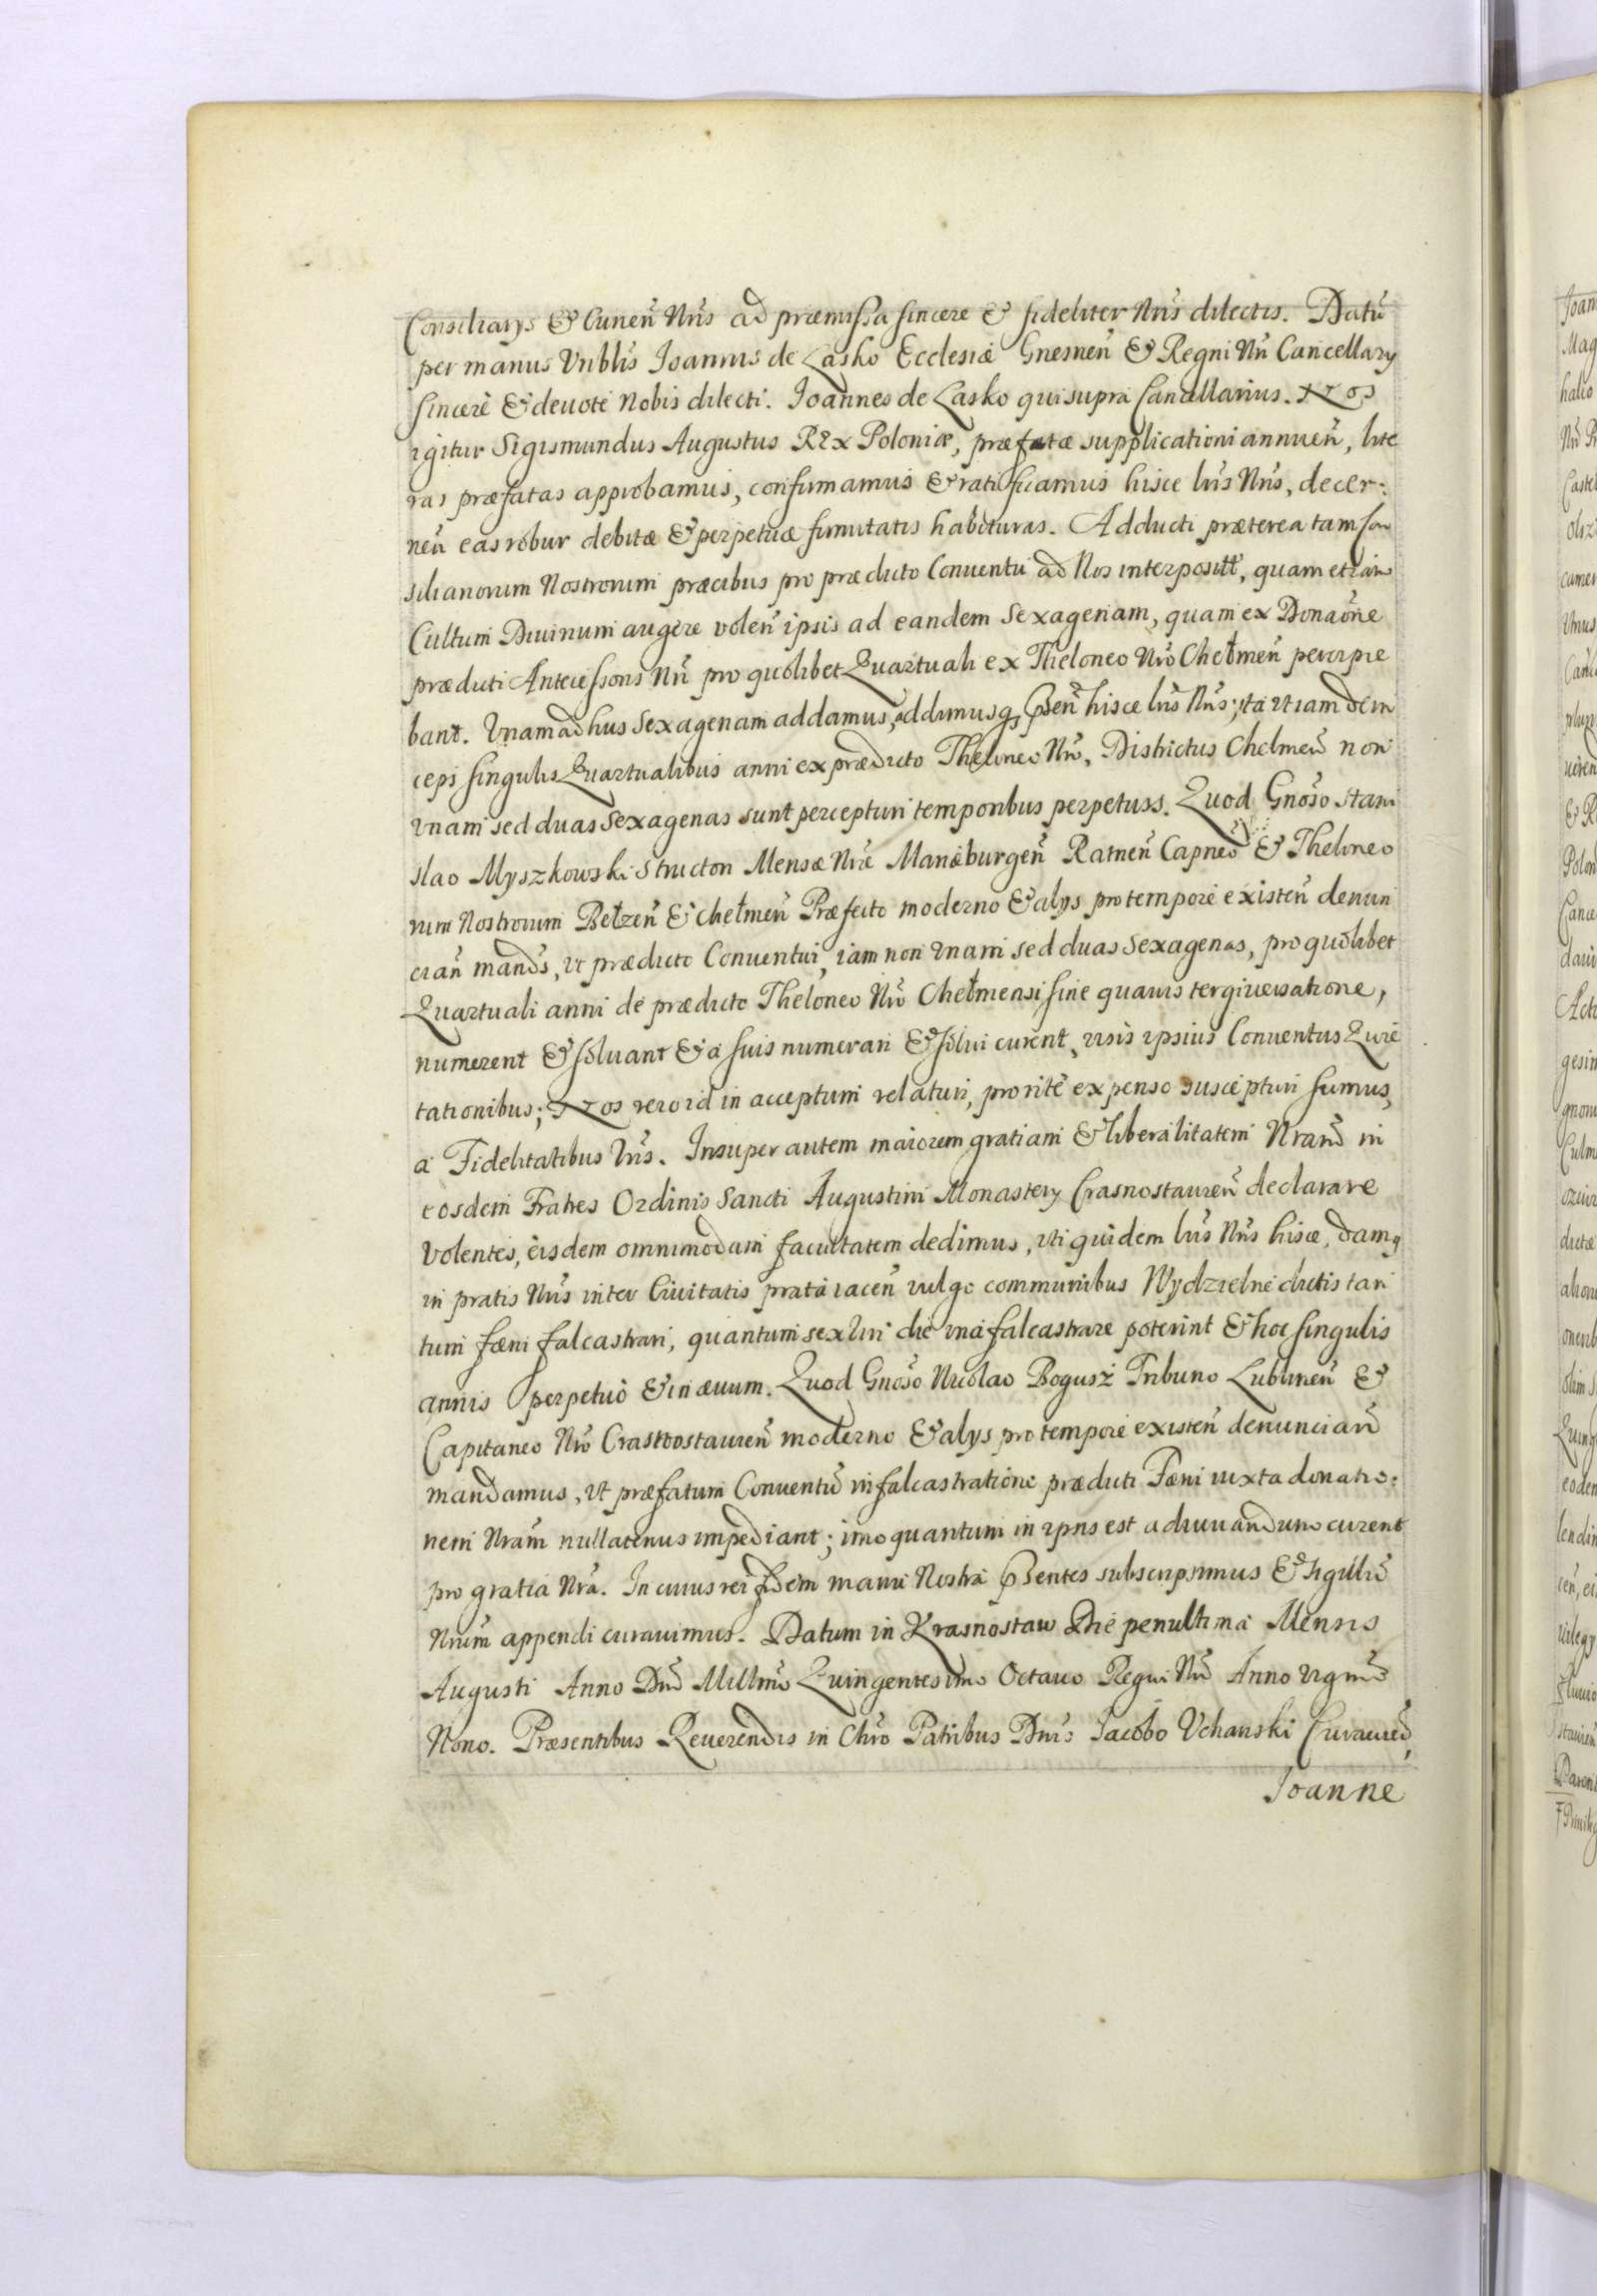 Consiliarys & Cunẽn Nr̃is ad præmissa sincere & fideliter Nr̃is dilectis. Datũ
per manus Vnblis Joannis de Lasko Ecclesiæ Gnesneñ & Regni Nr̃i Cancellary
sincerè & devotè Nobis dilecti. Joannes de Lasko qui supra Cancellarius. Nos
igitur Sigismundus Augustus Rex Poloniæ, præfatæ supplicationi annueñ, lite
ras præfatas approbamus, confirmamus & ratificamus hisce lr̃is Nr̃is, decer:
neñ eas robur debitæ & perpetuæ firmitatis habituras. Adducti præterea tam Con
siliariorum Nostrorum præcibus pro prædicto Conventu ad Nos interposit̃, quam etiam
Cultum Divinum augere voleñ ipsis ad eandem Sexagenam, quam ex Donaõne
prædicti Antecessoris Nr̃i pro quolibet Quartuali ex Theloneo Nr̃o Chełmeñ percipie
bant. Vnam adhuc Sexagenam addamus, addimusq̃ Pñ hisce lr̃is Nr̃is; ita vt iam dein
ceps singulis Quartualibus anni ex prædicto Theloneo Nr̃o, Districtus Chelmeñ non
vnam sed duas Sexagenas sunt percepturi temporibus perpetuis. Quod Gnoso Stani
slao Myszkowski Structori Mensæ Nr̃æ Mariæburgeñ Ratneñ Capneo & Theloneo
rum Nostrorum Bełzeñ & Chełmeñ Præfecto moderno & alys pro tempore existeñ denun
cian mandũs, vt prædicto Conventui, iam non vnam sed duas Sexagenas, pro quolibet
Quartuali anni de prædicto Theloneo Nr̃o Chełmensi sine quavis tergiversatione,
numerent & solvant & à suis numerari & solvi curent, visis ipsius Conventus Quie
tationibus; Nos vero id in acceptum relaturi, pro rite expenso suscepturi sumus,
à Fidelitatibus Vr̃is. Insuper autem maiorem gratiam & liberalitatem Nram̃ in
eosdem Fratres Ordinis Sancti Augustini Monastery Crasnostavieñ declarare
Volentes, eisdem omnimodam facultatem dedimus, vti quidem lr̃is Nr̃is hisce, dam9
in pratis Nr̃is inter Civitatis prata iaceñ vulgo communibus Wydzielne dictis tan
tum fæni falcastrari, quantum sex Viri die vna falcastrare poterint & hoc singulis
annis perpetuò & in ævum. Quod Gnoso Nicolao Bogusz Tribuno Lublineñ &
Capitaneo Nr̃o Crasnostavieñ moderno & alys pro tempore existeñ denunciañ
mandamus, vt præfatum Conventũ in falcastratione prædicti Fæni iuxta donatio:
nem Nram̃ nullatenus impediant; imo quantum in ipsis est adiuvandum curent
pro gratia Nr̃a. In cuius rei fidem manu Nostra Pñtes subscripsimus & sigillũ
Nrum̃ appendi curavimus. Datum in Krasnostaw Die penultima Mensis
Augusti Anno Dñi Millm̃o Quingentesimo Octavo Regni Nr̃i Anno Vigmo
Nono. Præsentibus Reverendis in Chr̃o Patribus Dñis Jacobo Vchanski Curavieñ,
Joanne